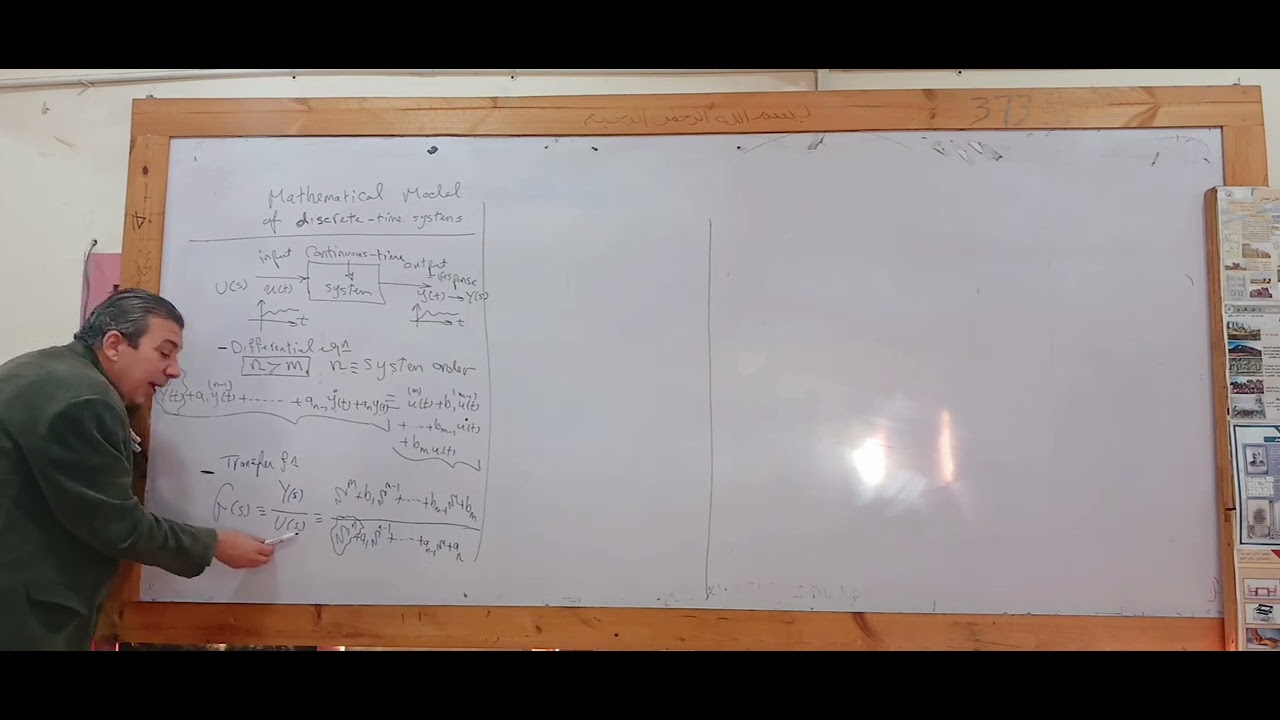 بسم الله الرحمن الرحيم
373
Mathematical Model
of discrete-time systems
input continuous-time output
response
U(s) u(t) system y(t) → Y(s)
t t
- Differential eqn
n > m n ≡ system order
y(t) + a₁ y⁽ⁿ⁻¹⁾(t) + ...... + aₙ₋₁ ẏ(t) + aₙ y(t) = u⁽ᵐ⁾(t) + b₁ u⁽ᵐ⁻¹⁾(t)
+ ... + bₘ₋₁ u̇(t)
+ bₘ u(t)
- Transfer fn
G(s) ≡ Y(s)/U(s) ≡ (sᵐ + b₁ sⁿ⁻¹ + .... + bₘ₋₁ s + bₘ)/(sⁿ + a₁ sⁿ⁻¹ + .... + aₙ₋₁ s + aₙ)